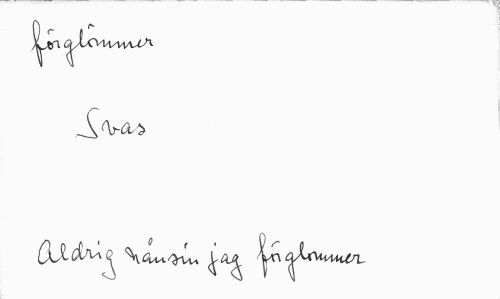 förglömmer
Svas
Aldrig nånsin jag förglommer